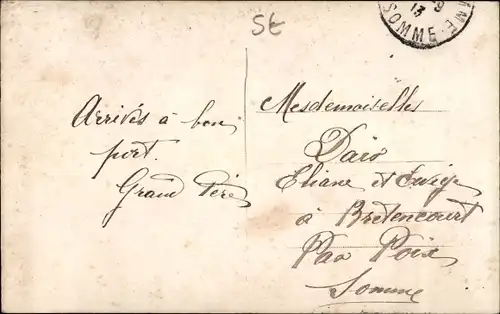 St
13 9
SOMME
Arrivés à bon
port.
Grand Père
Mesdemoiselles
Eliane et
à Bretencourt
Par Poix
Somme